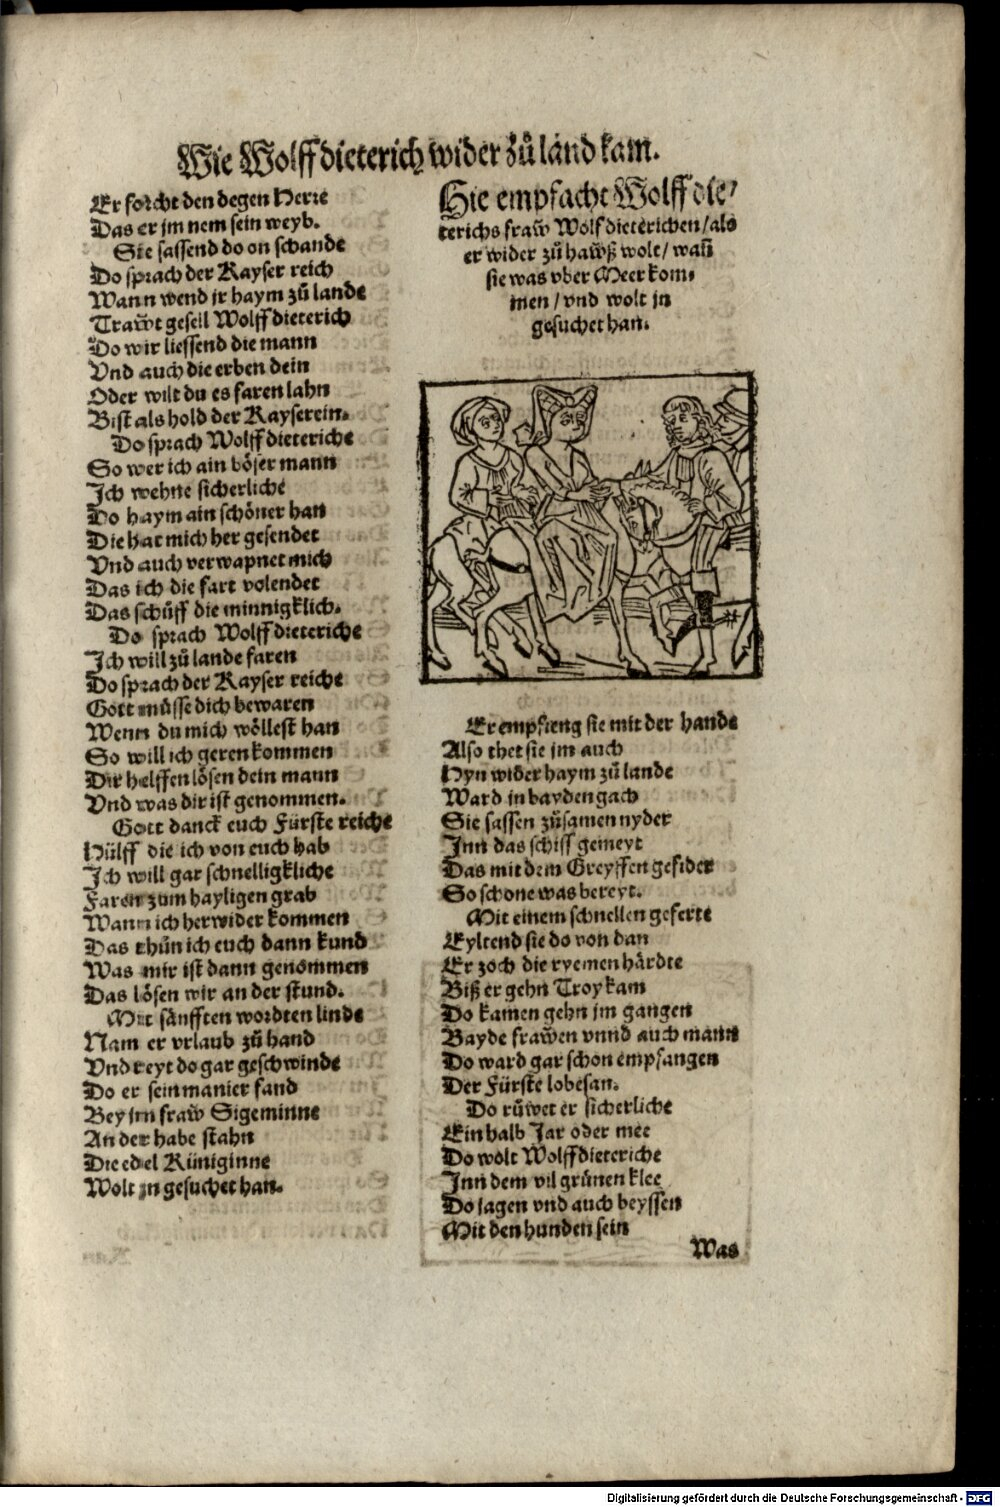 Wie Wolffdieterich wider zů land kam.
Er forcht den degen Herre
Das er jm nem sein weyb.
Sie sassend do on schande
Do sprach der Kayser reich
Wann wend jr haym zů lande
Traw̃t gesell Wolffdieterich
Do wir liessend die mann
Vnd auch die erben dein
Oder wilt du es faren lahn
Bist als hold der Kayserein.
Do sprach Wolffdieteriche
So wer ich ain böser mann
Ich wehne sicherliche
Do haym ain schöner han
Die hat mich her gesendet
Vnd auch verwapnet mich
Das ich die fart volendet
Das schůff die minnigklich.
Do sprach Wolffdieteriche
Ich will zů lande faren
Do sprach der Kayser reiche
Gott müsse dich bewaren
Wenn du mich wöllest han
So will ich geren kommen
Dir helffen lösen dein mann
Vnd was dir ist genommen.
Gott danck euch Fürste reiche
Hülff die ich von euch hab
Ich will gar schnelligkliche
Faren zum hayligen grab
Wann ich herwider kommen
Das thůn ich euch dann kund
Was mir ist dann genommen
Das lösen wir an der stund.
Mit sänfften wordten linde
Nam er vrlaub zů hand
Vnd reyt do gar geschwinde
Do er sein manier fand
Bey jm fraw̃ Sigeminne
An der habe stahn
Die edel Küniginne
Wolt jn gesuchet han.
Hie empfacht Wolffdie/
terichs fraw̃ Wolfdieterichen/als
er wider zů haw̃ß wolt/ wañ
sie was vber Meer kom-
men/vnd wolt jn
gesuchet han.
Er empfieng sie mit der hande
Also thet sie jm auch
Hyn wider haym zů lande
Ward jn bayden gach
Sie sassen zůsamen nyder
Inn das schiff gemeyt
Das mit dem Greyffen gefider
So schone was bereyt.
Mit einem schnellen geferte
Eyltend sie do von dan
Er zoch die ryemen hårdte
Biß er gehn Troy kam
Do kamen gehn jm gangen
Bayde fraw̃en vnnd auch mann
Do ward gar schon empfangen
Der Fürste lobesan.
Do růwet er sicherliche
Ein halb Jar oder mee
Do wolt Wolffdieteriche
Inn dem vil grünen klee
Do jagen vnd auch beyssen
Mit den hunden sein
Was
Digitalisierung gefördert durch die Deutsche Forschungsgemeinschaft - DFG